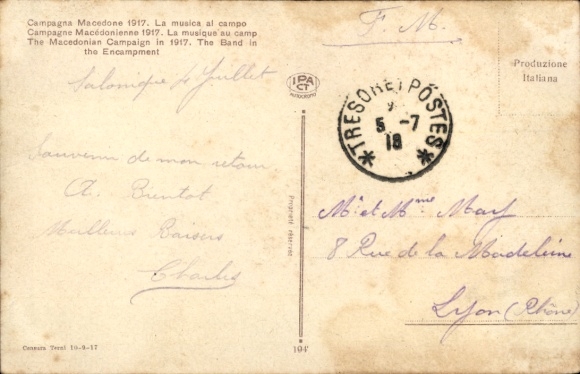 Campagna Macedone 1917. La musica al campo
Campagne Macédonienne 1917. La musique au camp
The Macedonian Campaign in 1917. The Band in
the Encampment
F. M.
Produzione
Italiana
IPA
CT
AUTOCROMO
Salonique 4 Juillet
TRESOR ET POSTES
5 -7
18
Souvenir de mon retour
A. Bientot
Meilleurs Baisers
Charles
Propriété réservée
Mr et Mme May
8 Rue de la Madeleine
Lyon (Rhône)
Censura Terni 10-9-17
194